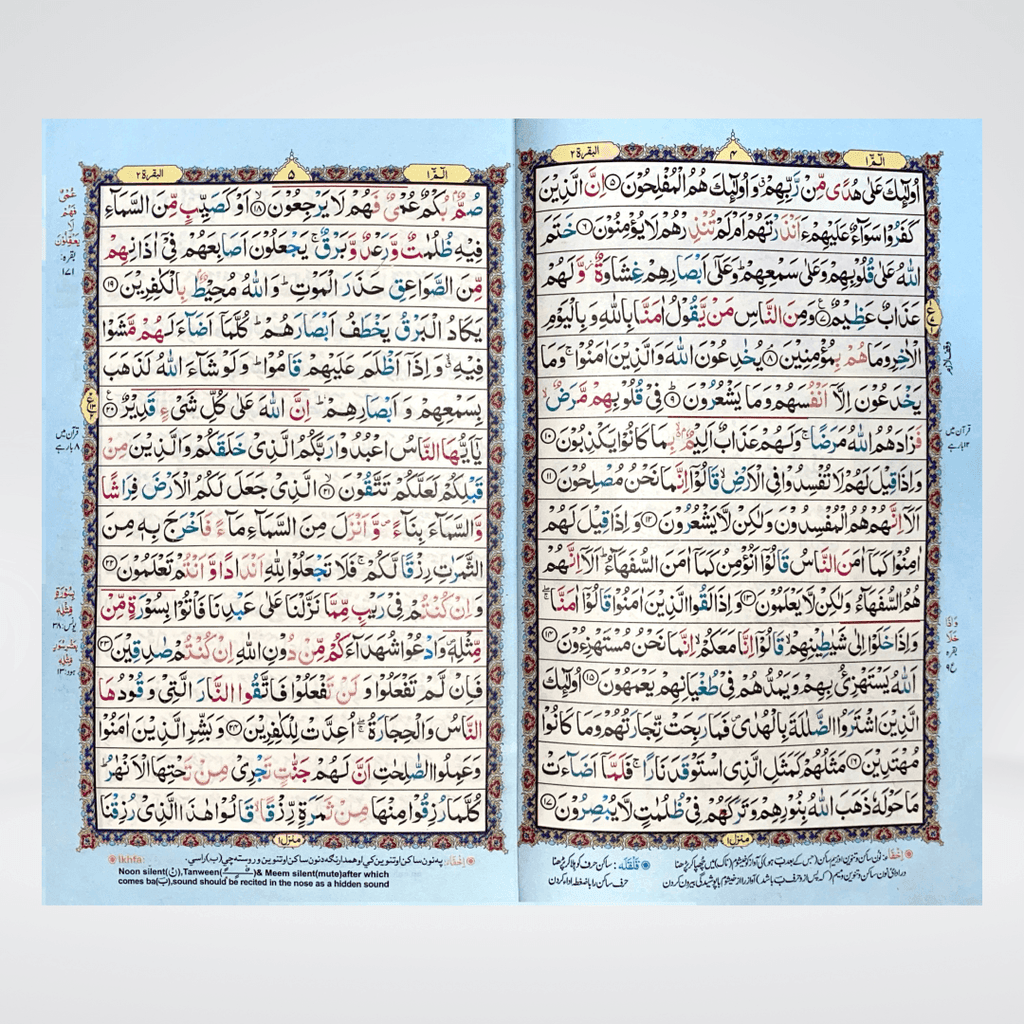 الٓمّٓ ١ ٤ البقرة ٢
أُولٰٓئِكَ عَلٰى هُدًى مِّنْ رَّبِّهِمْ ۗ وَ أُولٰٓئِكَ هُمُ الْمُفْلِحُوْنَ ﴿۵﴾ اِنَّ الَّذِيْنَ
كَفَرُوْا سَوَآءٌ عَلَيْهِمْ ءَاَنْذَرْتَهُمْ اَمْ لَمْ تُنْذِرْهُمْ لَا يُؤْمِنُوْنَ ﴿۶﴾ خَتَمَ
اللّٰهُ عَلٰى قُلُوْبِهِمْ وَعَلٰى سَمْعِهِمْ ؕ وَعَلٰٓى اَبْصَارِهِمْ غِشَاوَةٌ ۫ وَّ لَهُمْ
عَذَابٌ عَظِيْمٌ ﴿۷﴾ وَمِنَ النَّاسِ مَنْ يَّقُوْلُ اٰمَنَّا بِاللّٰهِ وَ بِالْيَوْمِ
الْاٰخِرِ وَمَا هُمْ بِمُؤْمِنِيْنَ ﴿۸﴾ يُخٰدِعُوْنَ اللّٰهَ وَالَّذِيْنَ اٰمَنُوْا ۚ وَمَا
يَخْدَعُوْنَ اِلَّاۤ اَنْفُسَهُمْ وَمَا يَشْعُرُوْنَ ﴿۹﴾ فِيْ قُلُوْبِهِمْ مَّرَضٌ ۙ
فَزَادَهُمُ اللّٰهُ مَرَضًا ۚ وَلَهُمْ عَذَابٌ اَلِيْمٌ ۢ بِمَا كَانُوْا يَكْذِبُوْنَ ﴿۱۰﴾
وَاِذَا قِيْلَ لَهُمْ لَا تُفْسِدُوْا فِي الْاَرْضِ ۙ قَالُوْۤا اِنَّمَا نَحْنُ مُصْلِحُوْنَ ﴿۱۱﴾
اَلَاۤ اِنَّهُمْ هُمُ الْمُفْسِدُوْنَ وَلٰكِنْ لَّا يَشْعُرُوْنَ ﴿۱۲﴾ وَاِذَا قِيْلَ لَهُمْ
اٰمِنُوْا كَمَاۤ اٰمَنَ النَّاسُ قَالُوْۤا اَنُؤْمِنُ كَمَاۤ اٰمَنَ السُّفَهَآءُ ؕ اَلَاۤ اِنَّهُمْ
هُمُ السُّفَهَآءُ وَلٰكِنْ لَّا يَعْلَمُوْنَ ﴿۱۳﴾ وَاِذَا لَقُوا الَّذِيْنَ اٰمَنُوْا قَالُوْۤا اٰمَنَّا ۚ
وَاِذَا خَلَوْا اِلٰى شَيٰطِيْنِهِمْ ۙ قَالُوْۤا اِنَّا مَعَكُمْ ۙ اِنَّمَا نَحْنُ مُسْتَهْزِءُوْنَ ﴿۱۴﴾
اَللّٰهُ يَسْتَهْزِئُ بِهِمْ وَيَمُدُّهُمْ فِيْ طُغْيَانِهِمْ يَعْمَهُوْنَ ﴿۱۵﴾ اُولٰٓئِكَ
الَّذِيْنَ اشْتَرَوُا الضَّلٰلَةَ بِالْهُدٰى ۪ فَمَا رَبِحَتْ تِّجَارَتُهُمْ وَمَا كَانُوْا
مُهْتَدِيْنَ ﴿۱۶﴾ مَثَلُهُمْ كَمَثَلِ الَّذِي اسْتَوْقَدَ نَارًا ۚ فَلَمَّاۤ اَضَآءَتْ
مَا حَوْلَهٗ ذَهَبَ اللّٰهُ بِنُوْرِهِمْ وَتَرَكَهُمْ فِيْ ظُلُمٰتٍ لَّا يُبْصِرُوْنَ ﴿۱۷﴾
وقف لازم
قرآن میں
۱۲ بار ہے
وَاِذَا
خَلَا
بقرہ
ع ۹
منزل ١
الٓمّٓ ١ ۵ البقرة ٢
صُمٌّۢ بُكْمٌ عُمْيٌ فَهُمْ لَا يَرْجِعُوْنَ ﴿۱۸﴾ اَوْ كَصَيِّبٍ مِّنَ السَّمَآءِ
فِيْهِ ظُلُمٰتٌ وَّرَعْدٌ وَّبَرْقٌ ۚ يَجْعَلُوْنَ اَصَابِعَهُمْ فِيْۤ اٰذَانِهِمْ
مِّنَ الصَّوَاعِقِ حَذَرَ الْمَوْتِ ؕ وَاللّٰهُ مُحِيْطٌۢ بِالْكٰفِرِيْنَ ﴿۱۹﴾
يَكَادُ الْبَرْقُ يَخْطَفُ اَبْصَارَهُمْ ؕ كُلَّمَاۤ اَضَآءَ لَهُمْ مَّشَوْا
فِيْهِ ۙ وَاِذَاۤ اَظْلَمَ عَلَيْهِمْ قَامُوْا ؕ وَلَوْ شَآءَ اللّٰهُ لَذَهَبَ
بِسَمْعِهِمْ وَ اَبْصَارِهِمْ ؕ اِنَّ اللّٰهَ عَلٰى كُلِّ شَيْءٍ قَدِيْرٌ ﴿۲۰﴾
يٰۤاَيُّهَا النَّاسُ اعْبُدُوْا رَبَّكُمُ الَّذِيْ خَلَقَكُمْ وَالَّذِيْنَ مِنْ
قَبْلِكُمْ لَعَلَّكُمْ تَتَّقُوْنَ ﴿۲۱﴾ الَّذِيْ جَعَلَ لَكُمُ الْاَرْضَ فِرَاشًا
وَّالسَّمَآءَ بِنَآءً ۪ وَّاَنْزَلَ مِنَ السَّمَآءِ مَآءً فَاَخْرَجَ بِهٖ مِنَ
الثَّمَرٰتِ رِزْقًا لَّكُمْ ۚ فَلَا تَجْعَلُوْا لِلّٰهِ اَنْدَادًا وَّاَنْتُمْ تَعْلَمُوْنَ ﴿۲۲﴾
وَاِنْ كُنْتُمْ فِيْ رَيْبٍ مِّمَّا نَزَّلْنَا عَلٰى عَبْدِنَا فَاْتُوْا بِسُوْرَةٍ مِّنْ
مِّثْلِهٖ ۪ وَادْعُوْا شُهَدَآءَكُمْ مِّنْ دُوْنِ اللّٰهِ اِنْ كُنْتُمْ صٰدِقِيْنَ ﴿۲۳﴾
فَاِنْ لَّمْ تَفْعَلُوْا وَلَنْ تَفْعَلُوْا فَاتَّقُوا النَّارَ الَّتِيْ وَقُوْدُهَا
النَّاسُ وَالْحِجَارَةُ ۖۚ اُعِدَّتْ لِلْكٰفِرِيْنَ ﴿۲۴﴾ وَبَشِّرِ الَّذِيْنَ اٰمَنُوْا
وَعَمِلُوا الصّٰلِحٰتِ اَنَّ لَهُمْ جَنّٰتٍ تَجْرِيْ مِنْ تَحْتِهَا الْاَنْهٰرُ ؕ
كُلَّمَا رُزِقُوْا مِنْهَا مِنْ ثَمَرَةٍ رِّزْقًا ۙ قَالُوْا هٰذَا الَّذِيْ رُزِقْنَا
عُمْيٌ
فَهُمْ
لَا
يَعْقِلُوْنَ
بقرہ:
۱۷۱
قرآن میں
۸ بار ہے
بِسُوْرَةٍ
مِّثْلِهٖ
یونس: ۳۸
بِعَشْرِ سُوَرٍ
مِّثْلِهٖ
ہود: ۱۳
منزل ١
قَلْقَلَه: ساکن حرف کو ہلا کر پڑھنا
حرف ساکن را با ضغطه ادا کردن
Ikhfa:
Noon silent(نْ),Tanween( ً ٍ ٌ )& Meem silent(mute)after which
comes ba(ب),sound should be recited in the nose as a hidden sound